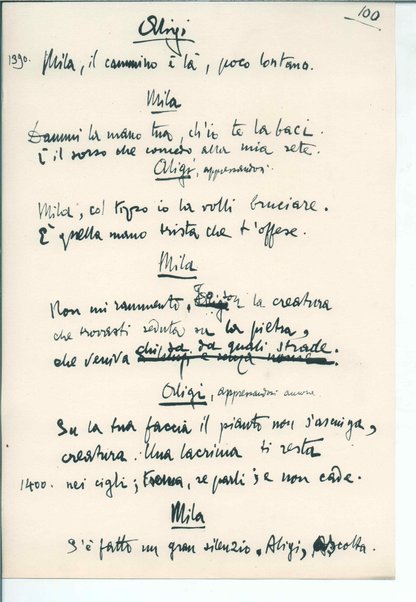 100
Aligi
1390. Mila, il cammino è là, poco lontano.
Mila
Dammi la mano tua, ch'io te la baci.
È il sorso che concedo alla mia sete.
Aligi, appressandosi.
Mila, col tizzo io la volli bruciare.
È quella mano trista che t'offese.
Mila
Non mi rammento, Son la creatura
che trovasti seduta su la pietra,
che veniva chi sa da quali strade.
Aligi, appressandosi ancora
Su la tua faccia il pianto non s'asciuga,
creatura. Una lacrima ti resta
1400. nei cigli; trema, se parli e non cade.
Mila
S'è fatto un gran silenzio, Aligi, ascolta.